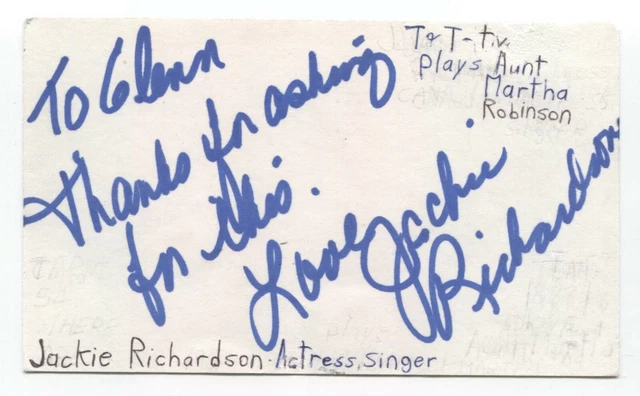 To Glenn
Thanks for asking
for this.
Love Jackie
Richardson
T&T-t.v.
plays Aunt
Martha
Robinson
Jackie Richardson-Actress, Singer